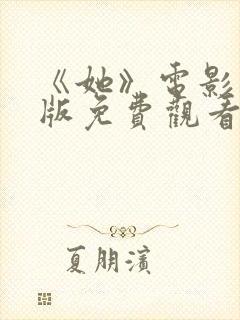 《她》电影
版免费觀看
夏朋濱